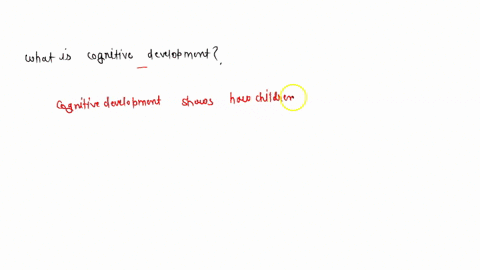 what is cognitive development?
Cognitive development shows how children